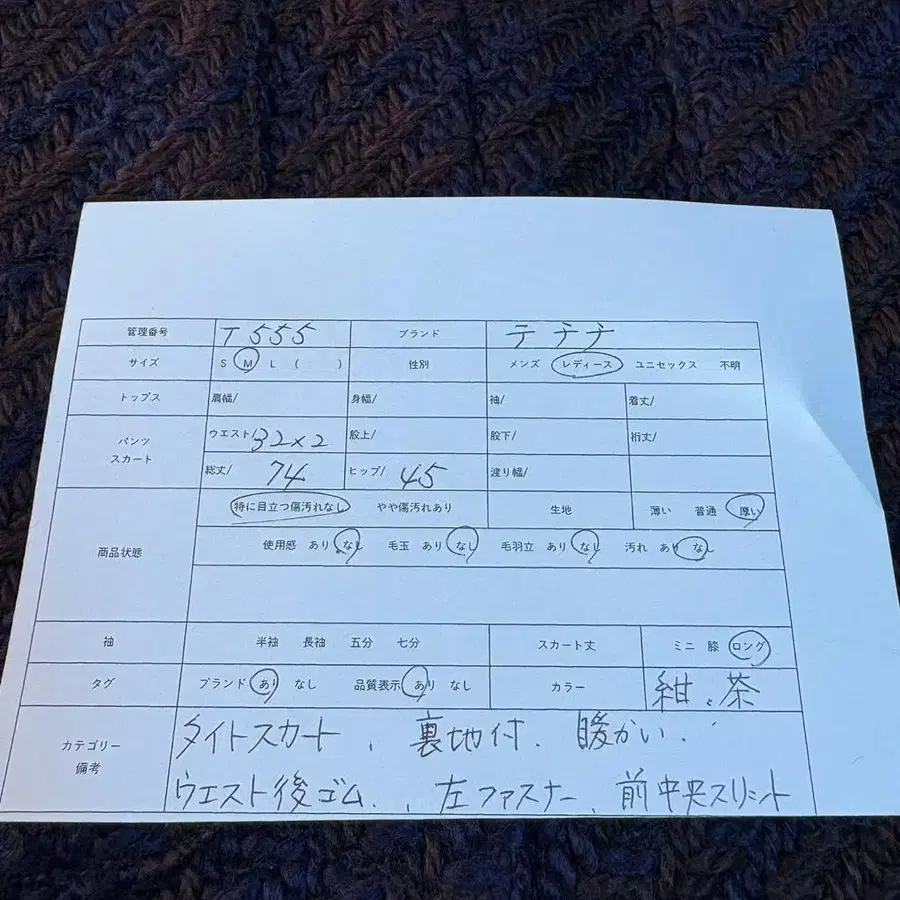 管理番号 T555 ブランド テチチ
サイズ S M L ( ) 性別 メンズ レディース ユニセックス 不明
トップス 肩幅/ 身幅/ 袖/ 着丈/
パンツ スカート ウエスト/32×2 股上/ 股下/ 裄丈/
総丈/ 74 ヒップ/ 45 渡り幅/
商品状態 特に目立つ傷汚れなし やや傷汚れあり 生地 薄い 普通 厚い
使用感 あり なし 毛玉 あり なし 毛羽立 あり なし 汚れ あり なし
袖 半袖 長袖 五分 七分 スカート丈 ミニ 膝 ロング
タグ ブランド あり なし 品質表示 あり なし カラー 紺、茶
カテゴリー 備考 タイトスカート、裏地付、暖かい、
ウエスト後ゴム、、左ファスナー、前中央スリット